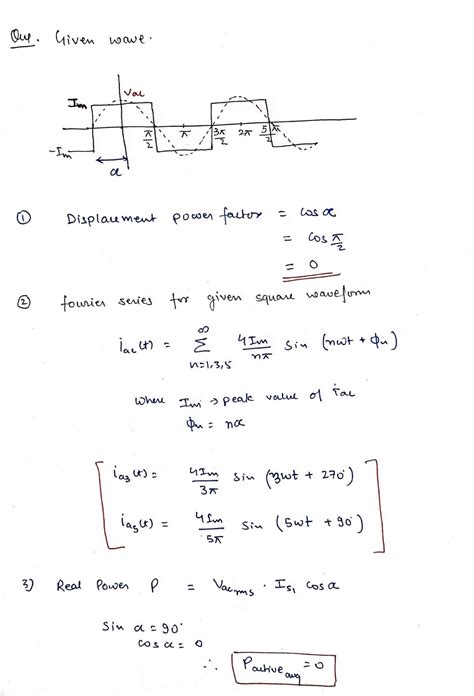 Que. Given wave.
Vac
Im
-Im
π/2 π 3π/2 2π 5/2 π
α
① Displacement power factor = cos α
= cos π/2
= 0
② fourier series for given square waveform
iac(t) = ∞ Σ n=1,3,5 4Im/nπ sin (nωt + ϕn)
where Im → peak value of iac
ϕn = nα
ia3(t) = 4Im/3π sin (3ωt + 270°)
ia5(t) = 4Im/5π sin (5ωt + 90°)
3) Real Power P = Vac rms · Is1 cos α
Sin α = 90°
cos α = 0
∴ Pactive avg = 0